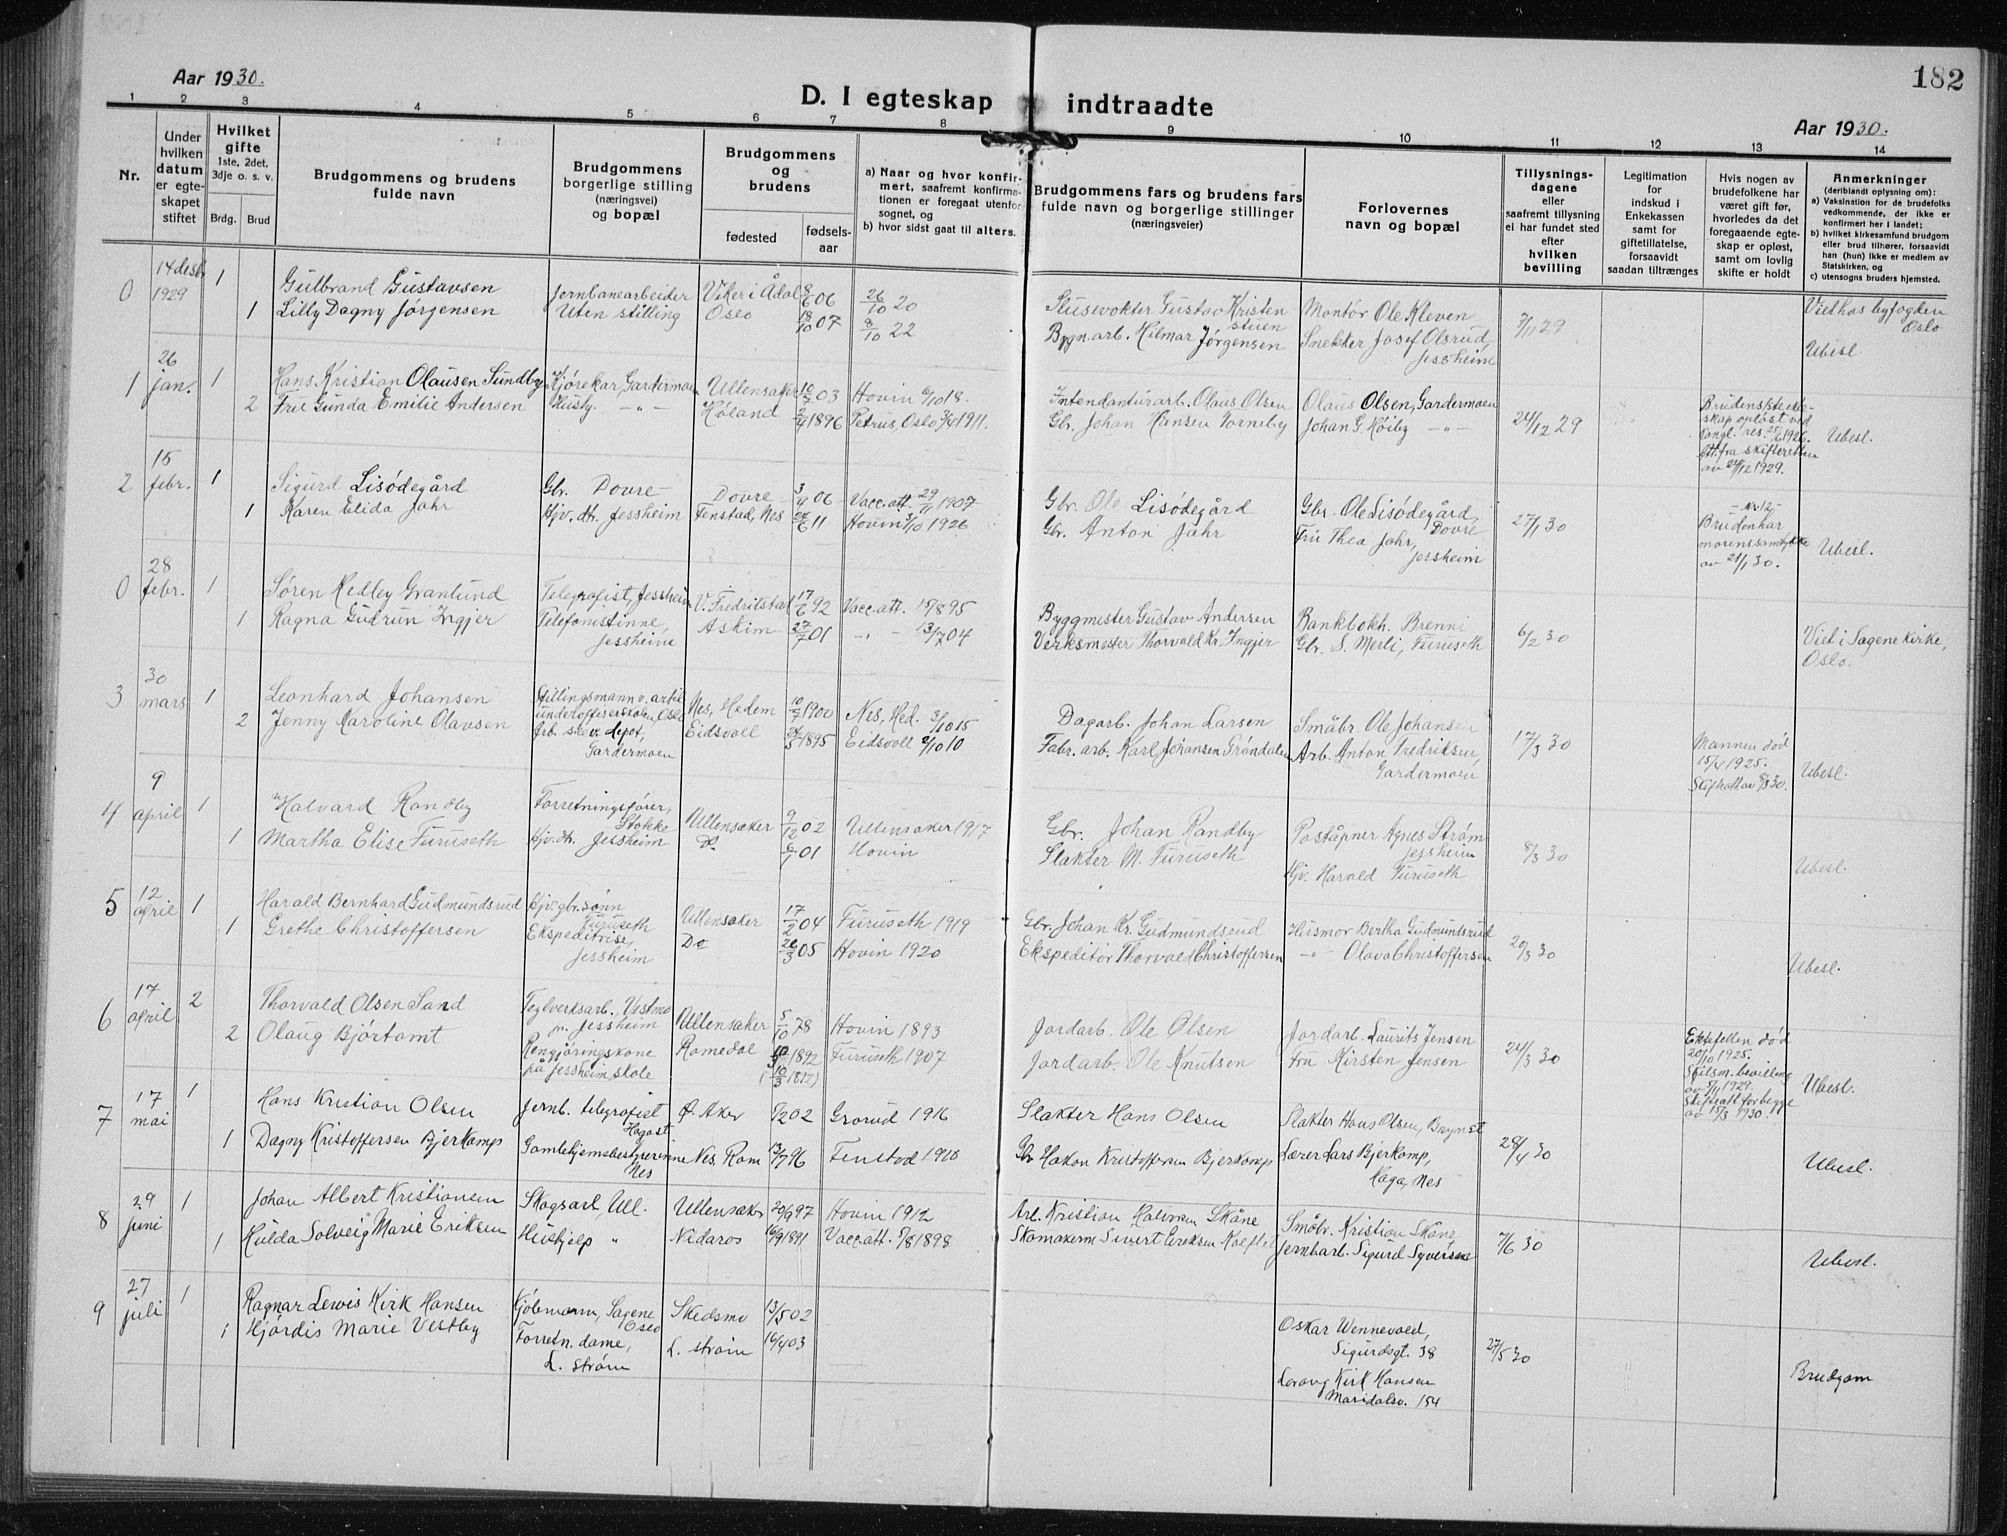 182
Aar 1930.
D. I egteskap indtraadte
Aar 1930.
1 2 3 4 5 6 7 8 9 10 11 12 13 14
Nr.
Under hvilken datum er egteskapet stiftet
Hvilket gifte 1ste, 2det, 3dje o. s. v.
Brdg. Brud
Brudgommens og brudens fulde navn
Brudgommens borgerlige stilling (næringsvei) og bopæl
Brudgommens og brudens
fødested
fødselsaar
a) Naar og hvor konfirmert, saafremt konfirmationen er foregaat utenfor sognet, og
b) hvor sidst gaat til alters.
Brudgommens fars og brudens fars fulde navn og borgerlige stillinger (næringsveier)
Forlovernes navn og bopæl
Tillysningsdagene eller saafremt tillysning ei har fundet sted efter hvilken bevilling
Legitimation for indskud i Enkekassen samt for giftetillatelse, forsaavidt saadan tiltrænges
Hvis nogen av brudefolkene har været gift før, hvorledes da det foregaaende egteskap er opløst, samt om lovlig skifte er holdt
Anmerkninger
(deriblandt oplysning om):
a) Vaksination for de brudefolks vedkommende, der ikke er konfirmert her i landet;
b) hvilket kirkesamfund brudgom eller brud tilhører, forsaavidt han (hun) ikke er medlem av Statskirken, og
c) utensogns bruders hjemsted.
0 14 desbr 1929 1 Gulbrand Gustavsen Jernbanearbeider Viker i Ådal 8/6 06 26/10 20 Gustav Kristenstuen Montör Ole Kleven 7/11 29 Viet hos byfogden Oslo
1 Lilly Dagny Jørgensen Uten stilling Oslo 18/10 07 8/10 22 Bygn.arb. Hilmar Jørgensen Snekker Josef Olsrud, Jessheim Ubesl.
1 26 jan. 1 Hans Kristian Olausen Sundby Kjørekar, Gardermoen Ullensaker 10/7 03 Hovin 6/10 18. Intendanturarb. Olaus Olsen Olaus Olsen, Gardermoen 24/12 29
2 Fru Gunda Emilie Andersen Husby. -"- Høland 2/4 1896 Petrus, Oslo 3/4 1911. Gbr. Johan Hansen Torneby Johan G. Höiby -"- Ubesl.
Brudens 1ste ekteskap opløst ved kongl. res. 25/6 1926. Att. fra skifteretten av 24/12 1929.
2 15 febr. 1 Sigurd Lisödegård Gbr. Dovre Dovre 3/9 06 Vacc.att. 29/11 1907 Gbr. Ole Lisödegård Gbr. Ole Lisödegård, Dovre 27/1 30
1 Karen Elida Jahr Hjv. dtr. Jessheim Fenstad, Nes 24/6 11 Hovin 3/10 1926 Gbr. Anton Jahr Fru Thea Jahr, Jessheim Ubesl.
Bruden har morens samtykke av 21/1 30.
0 28 febr. 1 Søren Hedley Granlund Telegrafist, Jessheim V. Fredrikstad 17/6 92 Vacc.att. 15/8 95 Byggmester Gustav Andersen Bankbokh. Brenni 6/2 30
1 Ragna Gudrun Ingjer Telefonistinne, Jessheim Askim 27/7 01 -"- 13/7 04 Verksmester Thorvald Kr. Ingjer Gbr. S. Merli, Furuseth Viet i Sagene kirke, Oslo.
3 30 mars 1 Leonhard Johansen Stillingsmann v. artil. underoffiserskolen, Oslo Nes, Hedem 10/7 1900 Nes, Hed. 3/10 15 Dagarb. Johan Larsen Småbr. Ole Johansen 17/3 30
2 Jenny Karoline Olavsen Arb. ske v. depot, Gardermoen Eidsvoll 24/3 1895 Eidsvoll 2/10 10 Fabr. arb. Karl Johansen Grøndalen Arb. Anton Fredriksen, Gardermoen Ubesl.
Mannen død 15/4 1925. Skifteatt av 8/3 30.
4 9 april 1 Halvard Randby Forretningsfører, Stokke Ullensaker 9/12 02 Ullensaker 1917 Gbr. Johan Randby Poståpner Agnes Strøm Jessheim 8/3 30
1 Martha Elise Furuseth Hjv. dtr. Jessheim Do. 6/1 01 Hovin Slakter M. Furuseth Hjv. Harald Furuseth Ubesl.
5 12 april 1 Harald Bernhard Gudmundsrud Hjv. gbr.sønn Furuseth Ullensaker 17/2 04 Furuseth 1919 Gbr. Johan Kr. Gudmundsrud Husmor Bertha Gudmundsrud 20/3 30
1 Grethe Christoffersen Ekspeditrise, Jessheim Do 26/3 05 Hovin 1920 Ekspeditör Thorvald Christoffersen -"- Olava Christoffersen Ubesl.
6 17 april 2 Thorvald Olsen Sand Teglverksarb. Vestmo pr. Jessheim Ullensaker 5/10 78 Hovin 1893 Jordarb. Ole Olsen Jordarb. Laurits Jensen 24/3 30
2 Olaug Björtomt Rengjöringskone på Jessheim skole Romedal 10/3 1892 (10/3 1892) Furuseth 1907 Jordarb. Ole Knutsen Fru Kirsten Jensen Ubesl.
Ektefellen død 20/10 1925. Skilsm. bevilling av 5/11 1929. Skifteatt for begge av 15/3 1930.
7 17 mai 1 Hans Kristian Olsen Jernb. telegrafist Hagast Ø. Aker 5/2 02 Grorud 1916 Slakter Hans Olsen Slakter Hans Olsen, Brynst 28/4 30
1 Dagny Kristoffersen Bjerkamp Gamlehjemsbestyrerinne Nes Nes, Rom 13/7 96 Fenstad 1910 Gbr Hakon Kristoffersen Bjerkamp Lærer Lars Bjerkamp, Haga, Nes Ubesl.
8 29 juni 1 Johan Albert Kristiansen Skogsarb, Ull. Ullensaker 20/9 97 Hovin 1912 Arb. Kristian Halvorsen Skåne Småbr. Kristian Skåne 7/6 30
1 Hulda Solveig Marie Eriksen Hushjelp " Nidaros 16/9 1891 Vacc.att. 7/8 1898 Skomakerm Sivert Eriksen Jernbarb. Sigurd Syversen Ubesl.
9 27 juli 1 Ragnar Lewis Kirk Hansen Kjöbmann, Sagene Oslo Skedsmo 13/5 02 Oskar Wennevold, Sigurdsgt. 38 27/5 30
1 Hjördis Marie Vestby Forretn. dame, L. strøm L. strøm 16/4 03 Kirk Hansen Maridalsv. 154 Brudgom